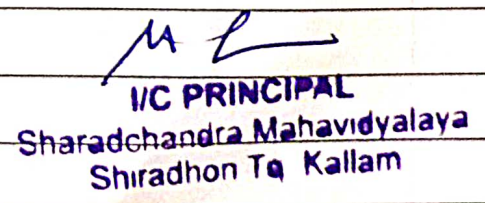 I/C PRINCIPAL
Sharadchandra Mahavidyalaya
Shiradhon Tq Kallam